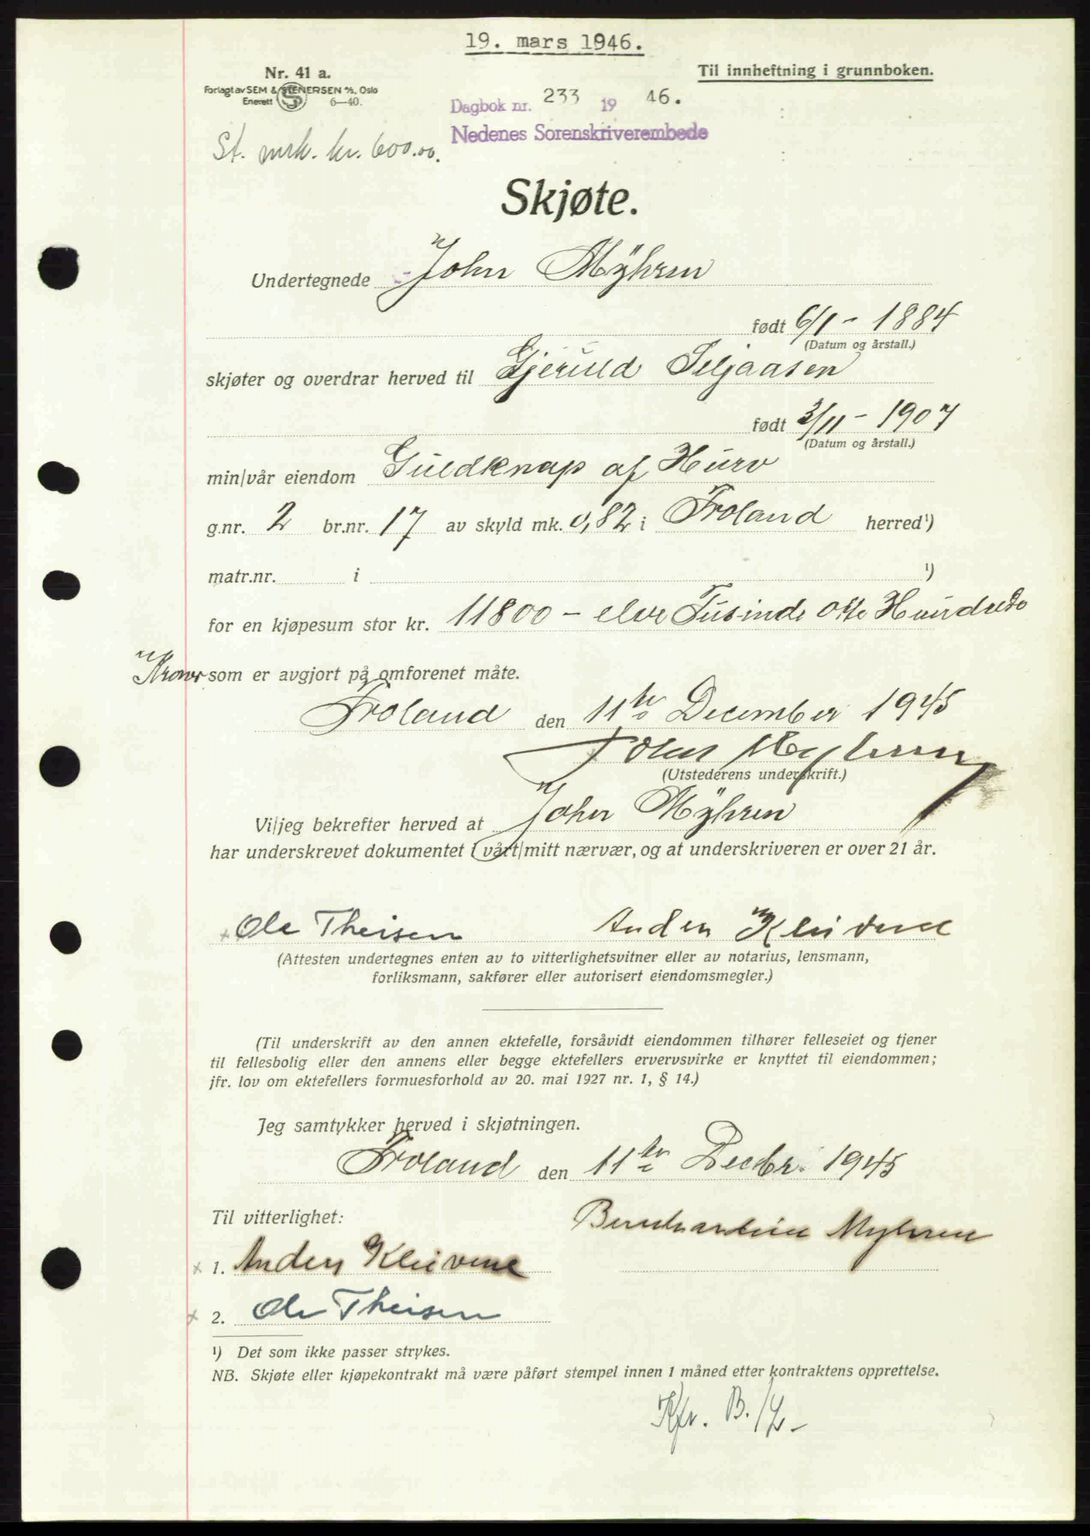 19. mars 1946.
Nr. 41 a.
Til innheftning i grunnboken.
Forlagt av SEM & STENERSEN A/S, Oslo
Enerett S 6—40.
Dagbok nr. 233 1946.
Nedenes Sorenskriverembede
St. mrk. kr. 600.00.
Skjøte.
Undertegnede John Mÿhren
født 6/1 - 1884
(Datum og årstall.)
skjøter og overdrar herved til Gjeruld Seljaasen
født 3/11 - 1907
(Datum og årstall.)
min/vår eiendom Guldknap af Hurv
g.nr. 2 br.nr. 17 av skyld mk. 0,82 i Froland herred¹)
matr.nr. i ¹)
for en kjøpesum stor kr. 11800 - elve Tusinde otte Hundrede
Kroner som er avgjort på omforenet måte.
Froland den 11te December 1945
John Myhren
(Utstederens underskrift.)
Vi/jeg bekrefter herved at John Mÿhren
har underskrevet dokumentet i vårt/mitt nærvær, og at underskriveren er over 21 år.
x Ole Theisen Anders Kleivene
(Attesten undertegnes enten av to vitterlighetsvitner eller av notarius, lensmann,
forliksmann, sakfører eller autorisert eiendomsmegler.)
(Til underskrift av den annen ektefelle, forsåvidt eiendommen tilhører felleseiet og tjener
til fellesbolig eller den annens eller begge ektefellers ervervsvirke er knyttet til eiendommen;
jfr. lov om ektefellers formuesforhold av 20. mai 1927 nr. 1, § 14.)
Jeg samtykker herved i skjøtningen.
Froland den 11te Decbr. 1945
Til vitterlighet:
Myhren
x 1. Anders Kleivene
x 2. Ole Theisen
¹) Det som ikke passer strykes.
NB. Skjøte eller kjøpekontrakt må være påført stempel innen 1 måned etter kontraktens opprettelse.
Kfr. B.